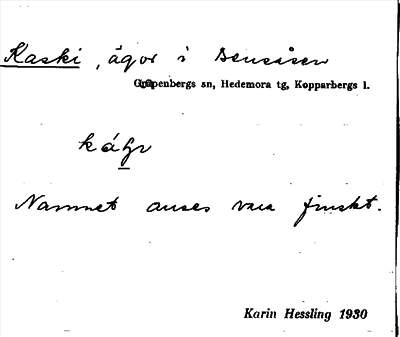 Kaski, ägor i Bensåsen
Garpenbergs sn, Hedemora tg, Kopparbergs l.
Namnet anses vara finskt.
Karin Hessling 1930